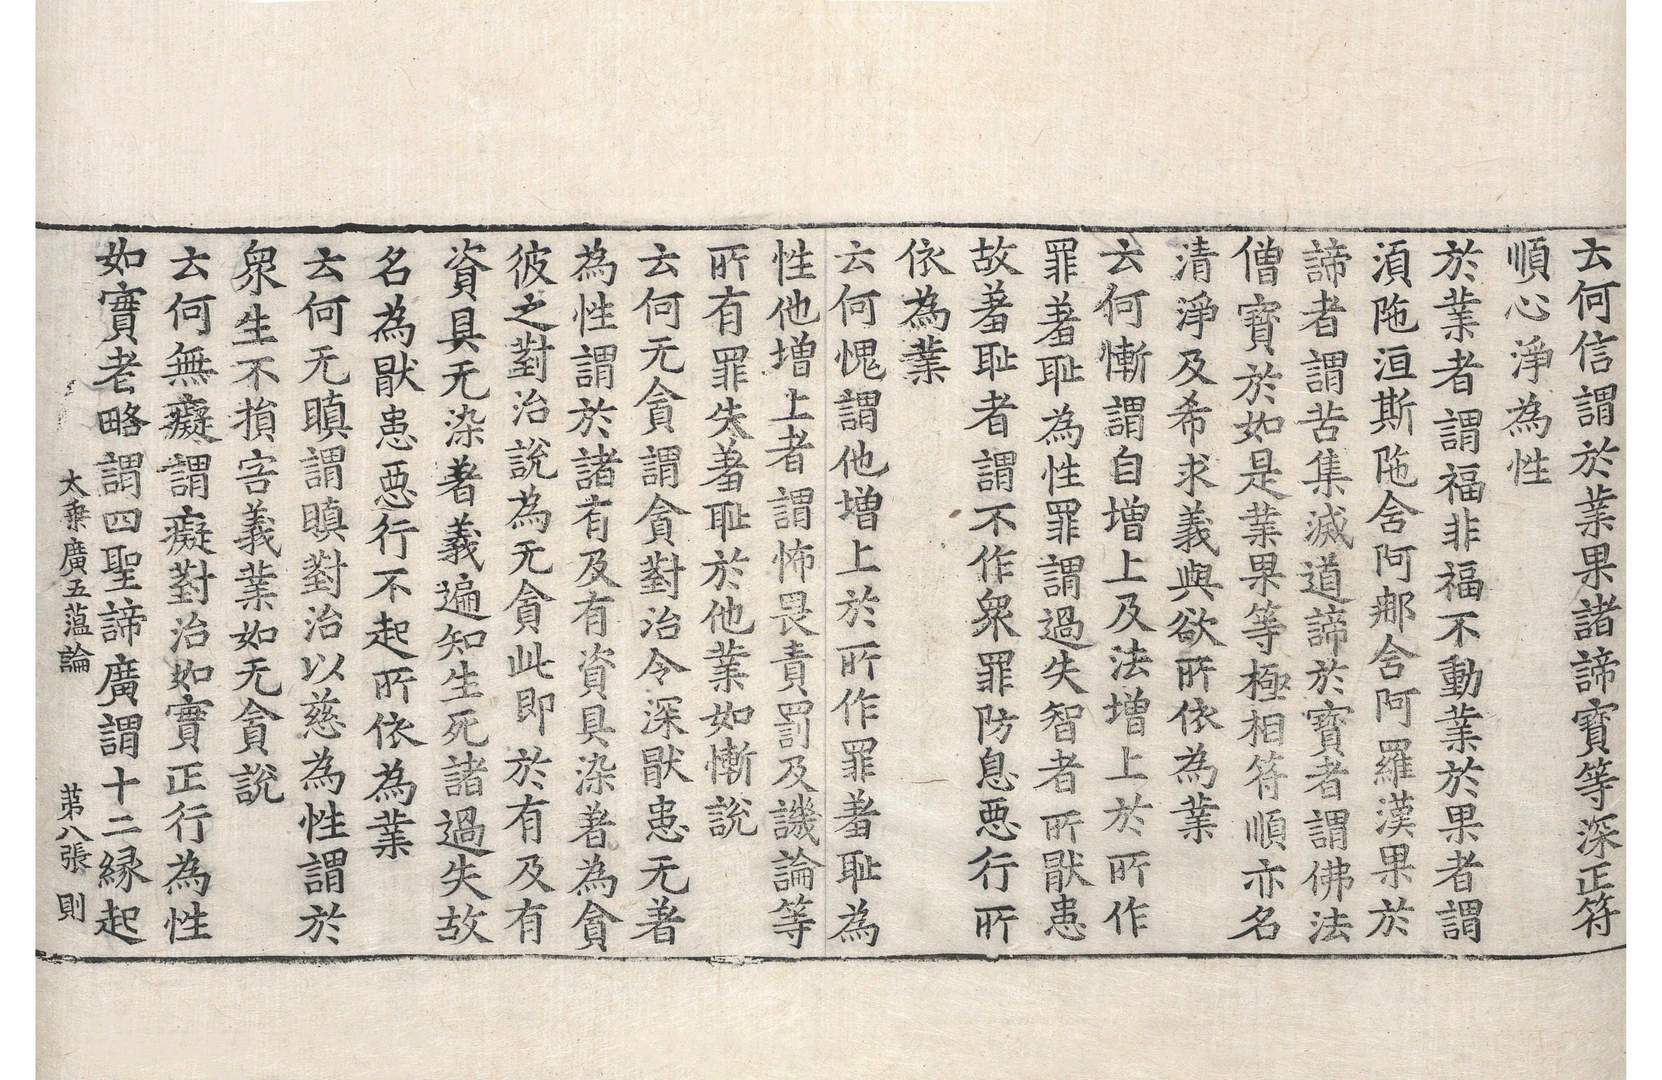 云何信謂於業果諸諦寶等深正符
順心淨為性
於業者謂福非福不動業於果者謂
湏陁洹斯陁含阿那含阿羅漢果於
諦者謂苦集滅道諦於寶者謂佛法
僧寶於如是業果等極相符順亦名
清淨及希求義與欲所依為業
云何慚謂自增上及法增上於所作
罪羞耻為性罪謂過失智者所猒患
故羞耻者謂不作衆罪防息惡行所
依為業
云何愧謂他增上於所作罪羞耻為
性他增上者謂怖畏責罰及譏論等
所有罪失羞耻於他業如慚說
云何无貪謂貪對治令深猒患无著
為性謂於諸有及有資具染著為貪
彼之對治說為无貪此即於有及有
資具无染著義遍知生死諸過失故
名為猒患惡行不起所依為業
云何无瞋謂瞋對治以慈為性謂於
衆生不損害義業如无貪說
云何無癡謂癡對治如實正行為性
如實者略謂四聖諦廣謂十二緣起
大乘廣五蕰論 第八張 則